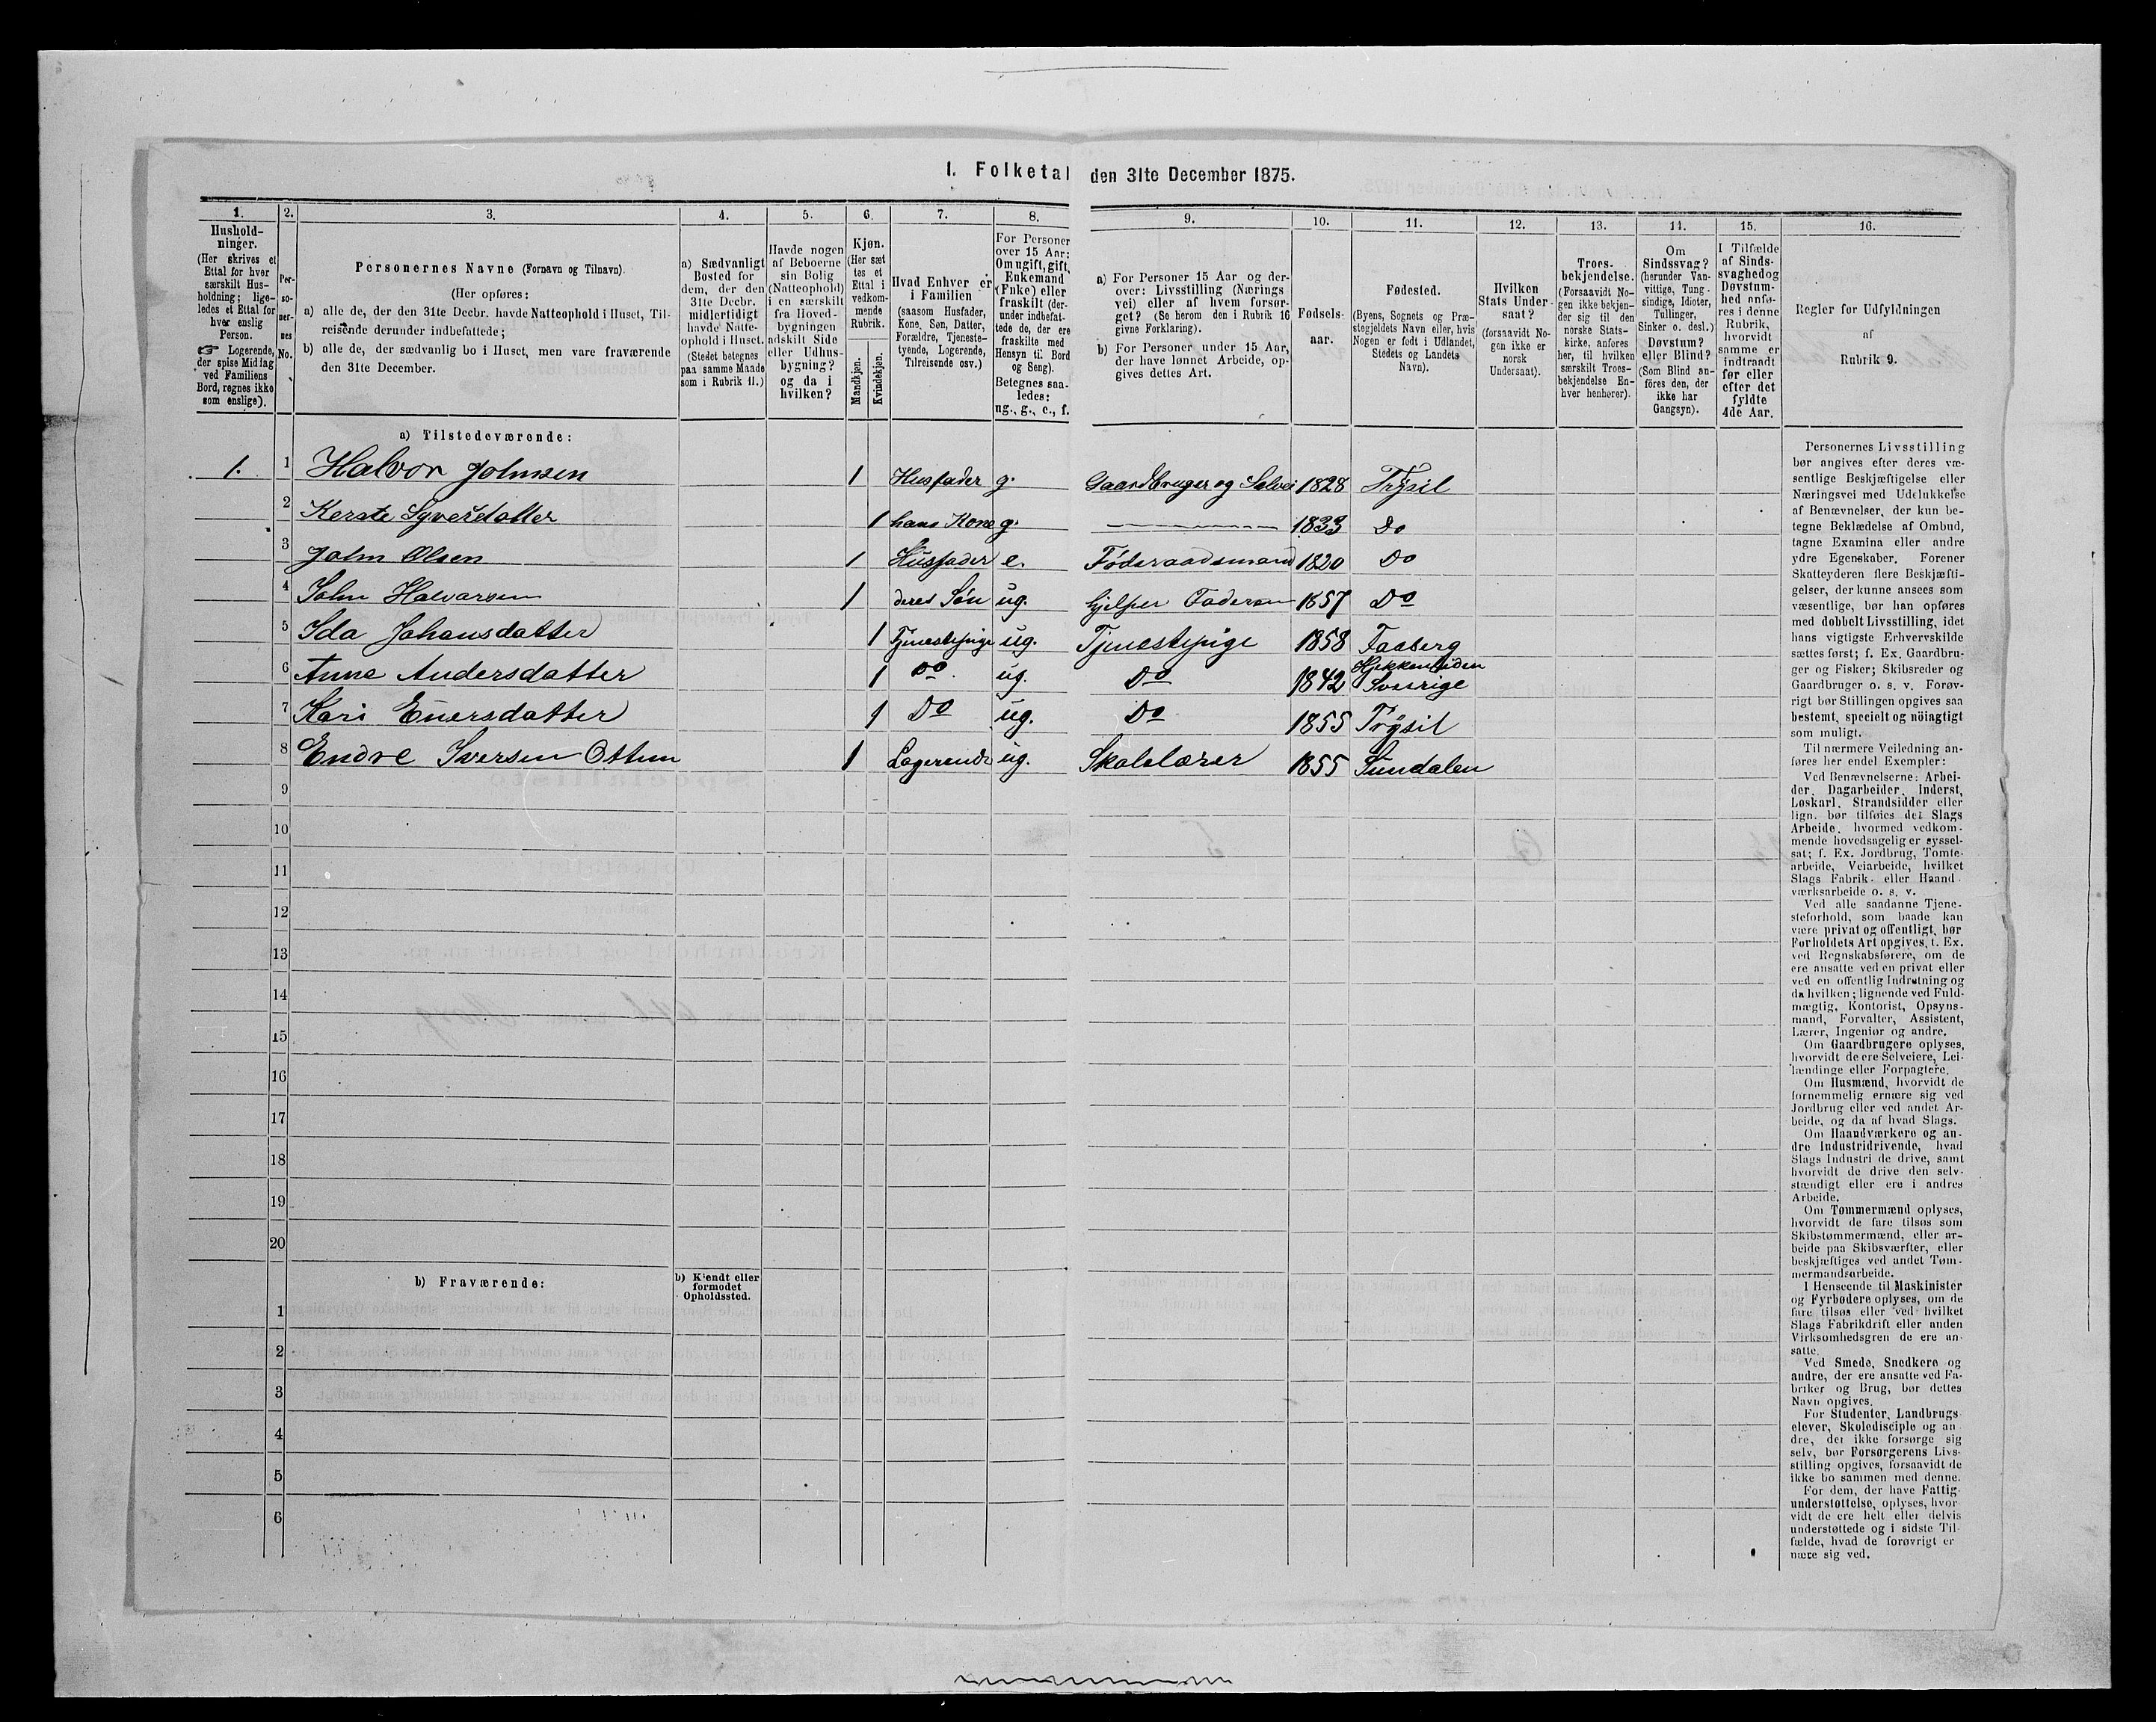 1. Folketal den 31te December 1875.
1. 2. 3. 4. 5. 6. 7. 8. 9. 10. 11. 12. 13. 14. 15. 16.
Hushold-
ninger.
(Her skrives et
Ettal for hver
særskilt Hus-
holdning; lige-
ledes et Ettal for
hver enslig
Person.
☞ Logerende,
der spise Middag
ved Familiens
Bord, regnes ikke
som enslige).
Per-
so-
ner-
nes
No.
Personernes Navne (Fornavn og Tilnavn).
(Her opføres:
a) alle de, der den 31te Decbr. havde Natteophold i Huset, Til-
reisende derunder indbefattede;
b) alle de, der sædvanlig bo i Huset, men vare fraværende
den 31te December.
a) Sædvanligt
Bosted for
dem, der den
31te Decbr.
midlertidigt
havde Natte-
ophold i Huset.
(Stedet betegnes
paa samme Maade
som i Rubrik 11.)
Havde nogen
af Beboerne
sin Bolig
(Natteophold)
i en særskilt
fra Hoved-
bygningen
adskilt Side
eller Udhus-
bygning?
og da i
hvilken?
Kjøn.
(Her sæt
tes et
Ettal i
vedkom-
mende
Rubrik.
Mandkjøn.
Kvindekjøn.
Hvad Enhver er
i Familien
(saasom Husfader,
Kone, Søn, Datter,
Forældre, Tjeneste-
tyende, Logerende,
Tilreisende osv.)
For Personer
over 15 Aar:
Om ugift, gift,
Enkemand
(Enke) eller
fraskilt (der-
under indbefat-
tede de, der ere
fraskilte med
Hensyn til Bord
og Seng).
Betegnes saa-
ledes:
ug., g., e., f.
a) For Personer 15 Aar og der-
over: Livsstilling (Nærings
vei) eller af hvem forsør-
get? (Se herom den i Rubrik 16
givne Forklaring).
b) For Personer under 15 Aar,
der have lønnet Arbeide, op-
gives dettes Art.
Fødsels-
aar.
Fødested.
(Byens, Sognets og Præ-
stegjeldets Navn eller, hvis
Nogen er født i Udlandet,
Stedets og Landets
Navn).
Hvilken
Stats Under-
saat?
(forsaavidt No-
gen ikke er
norsk
Undersaat).
Troes-
bekjendelse.
(Forsaavidt No-
gen ikke bekjen-
der sig til den
norske Stats-
kirke, anføres
her, til hvilken
særskilt Troes-
bekjendelse En-
hver henhører).
Om
Sindssvag?
(herunder Van-
vittige, Tung-
sindige, Idioter,
Tullinger,
Sinker o. desl.)
Døvstum?
eller Blind?
(Som Blind an-
føres den, der
ikke har
Gangsyn).
I Tilfælde
af Sinds-
svaghed og
Døvstum-
hed anfø-
res i denne
Rubrik,
hvorvidt
samme er
indtraadt
før eller
efter det
fyldte
4de Aar.
Regler for Udfyldningen
af
Rubrik 9.
a) Tilstedeværende:
1. 1 Halvor Johnsen 1 Husfader g. Gaardbruger og Selvei 1828 Trysil
2 Kerste Syversdatter 1 hans Kone g. 1833 Do
3 John Olsen 1 Husfader e. Føderaadsmand 1820 Do
4 John Halvorsen 1 deres Søn ug. hjelper Faderen 1857 Do
5 Ida Johansdatter 1 Tjenestepige ug. Tjenestepige 1858 Faaberg
6 Anne Andersdatter 1 Do ug. Do 1842 Sverrige
7 Kari Enersdatter 1 Do ug. Do 1855 Trysil
8 Endre Iversen Ottem 1 Logerende ug. Skolelærer 1855 Sundalen
9
10
11
12
13
14
15
16
17
18
19
20
b) Fraværende:
b) Kjendt eller
formodet
Opholdssted.
1
2
3
4
5
6
Personernes Livsstilling
bør angives efter deres væ-
sentlige Beskjæftigelse eller
Næringsvei med Udelukkelse
af Benævnelser, der kun be-
tegne Beklædelse af Ombud,
tagne Examina eller andre
ydre Egenskaber. Forener
Skatteyderen flere Beskjæfti-
gelser, der kunne ansees som
væsentlige, bør han opføres
med dobbelt Livsstilling, idet
hans vigtigste Erhvervskilde
sættes først; f. Ex. Gaardbru-
ger og Fisker; Skibsreder og
Gaardbruger o. s. v. Forøv-
rigt bør Stillingen opgives saa
bestemt, specielt og nøiagtigt
som muligt.
Til nærmere Veiledning an-
føres her endel Exempler:
Ved Benævnelserne: Arbei-
der, Dagarbeider, Inderst,
Løskarl, Strandsidder eller
lign. bør tilføies det Slags
Arbeide, hvormed vedkom-
mende hovedsagelig er syssel-
sat; f. Ex. Jordbrug, Tomte-
arbeide, Veiarbeide, hvilket
Slags Fabrik- eller Haand-
værksarbeide o. s. v.
Ved alle saadanne Tjene-
steforhold, som baade kan
være privat og offentligt, bør
Forholdets Art opgives, t. Ex.
ved Regnskabsførere, om de
ere ansatte ved en privat eller
ved en offentlig Indretning og
da hvilken; lignende ved Fuld-
mægtig, Kontorist, Opsyns-
mand, Forvalter, Assistent,
Lærer, Ingeniør og andre.
Om Gaardbrugere oplyses,
hvorvidt de ere Selveiere, Lei-
lændinge eller Forpagtere.
Om Husmænd, hvorvidt de
fornemmelig ernære sig ved
Jordbrug eller ved andet Ar-
beide, og da af hvad Slags.
Om Haandværkere og an-
dre Industridrivende, hvad
Slags Industri de drive, samt
hvorvidt de drive den selv-
stændigt eller ere i andres
Arbeide.
Om Tømmermænd oplyses,
hvorvidt de fare tilsøs som
Skibstømmermænd, eller ar-
beide paa Skibsværfter, eller
beskjæftiges ved andet Tøm-
mermandsarbeide.
I Henseende til Maskinister
og Fyrbødere oplyses, om de
fare tilsøs eller ved hvilket
Slags Fabrikdrift eller anden
Virksomhedsgren de ere an-
satte.
Ved Smede, Snedkere og
andre, der ere ansatte ved Fa-
briker og Brug, bør dettes
Navn opgives.
For Studenter, Landbrugs
elever, Skoledisciple og an
dre, der ikke forsørge sig
selv, bør Forsørgerens Livs-
stilling opgives, forsaavidt de
ikke bo sammen med denne.
For dem, der have Fattig
understøttelse, oplyses, hvor
vidt de ere helt eller delvis
understøttede og i sidste Til-
fælde, hvad de forøvrigt er
nære sig ved.